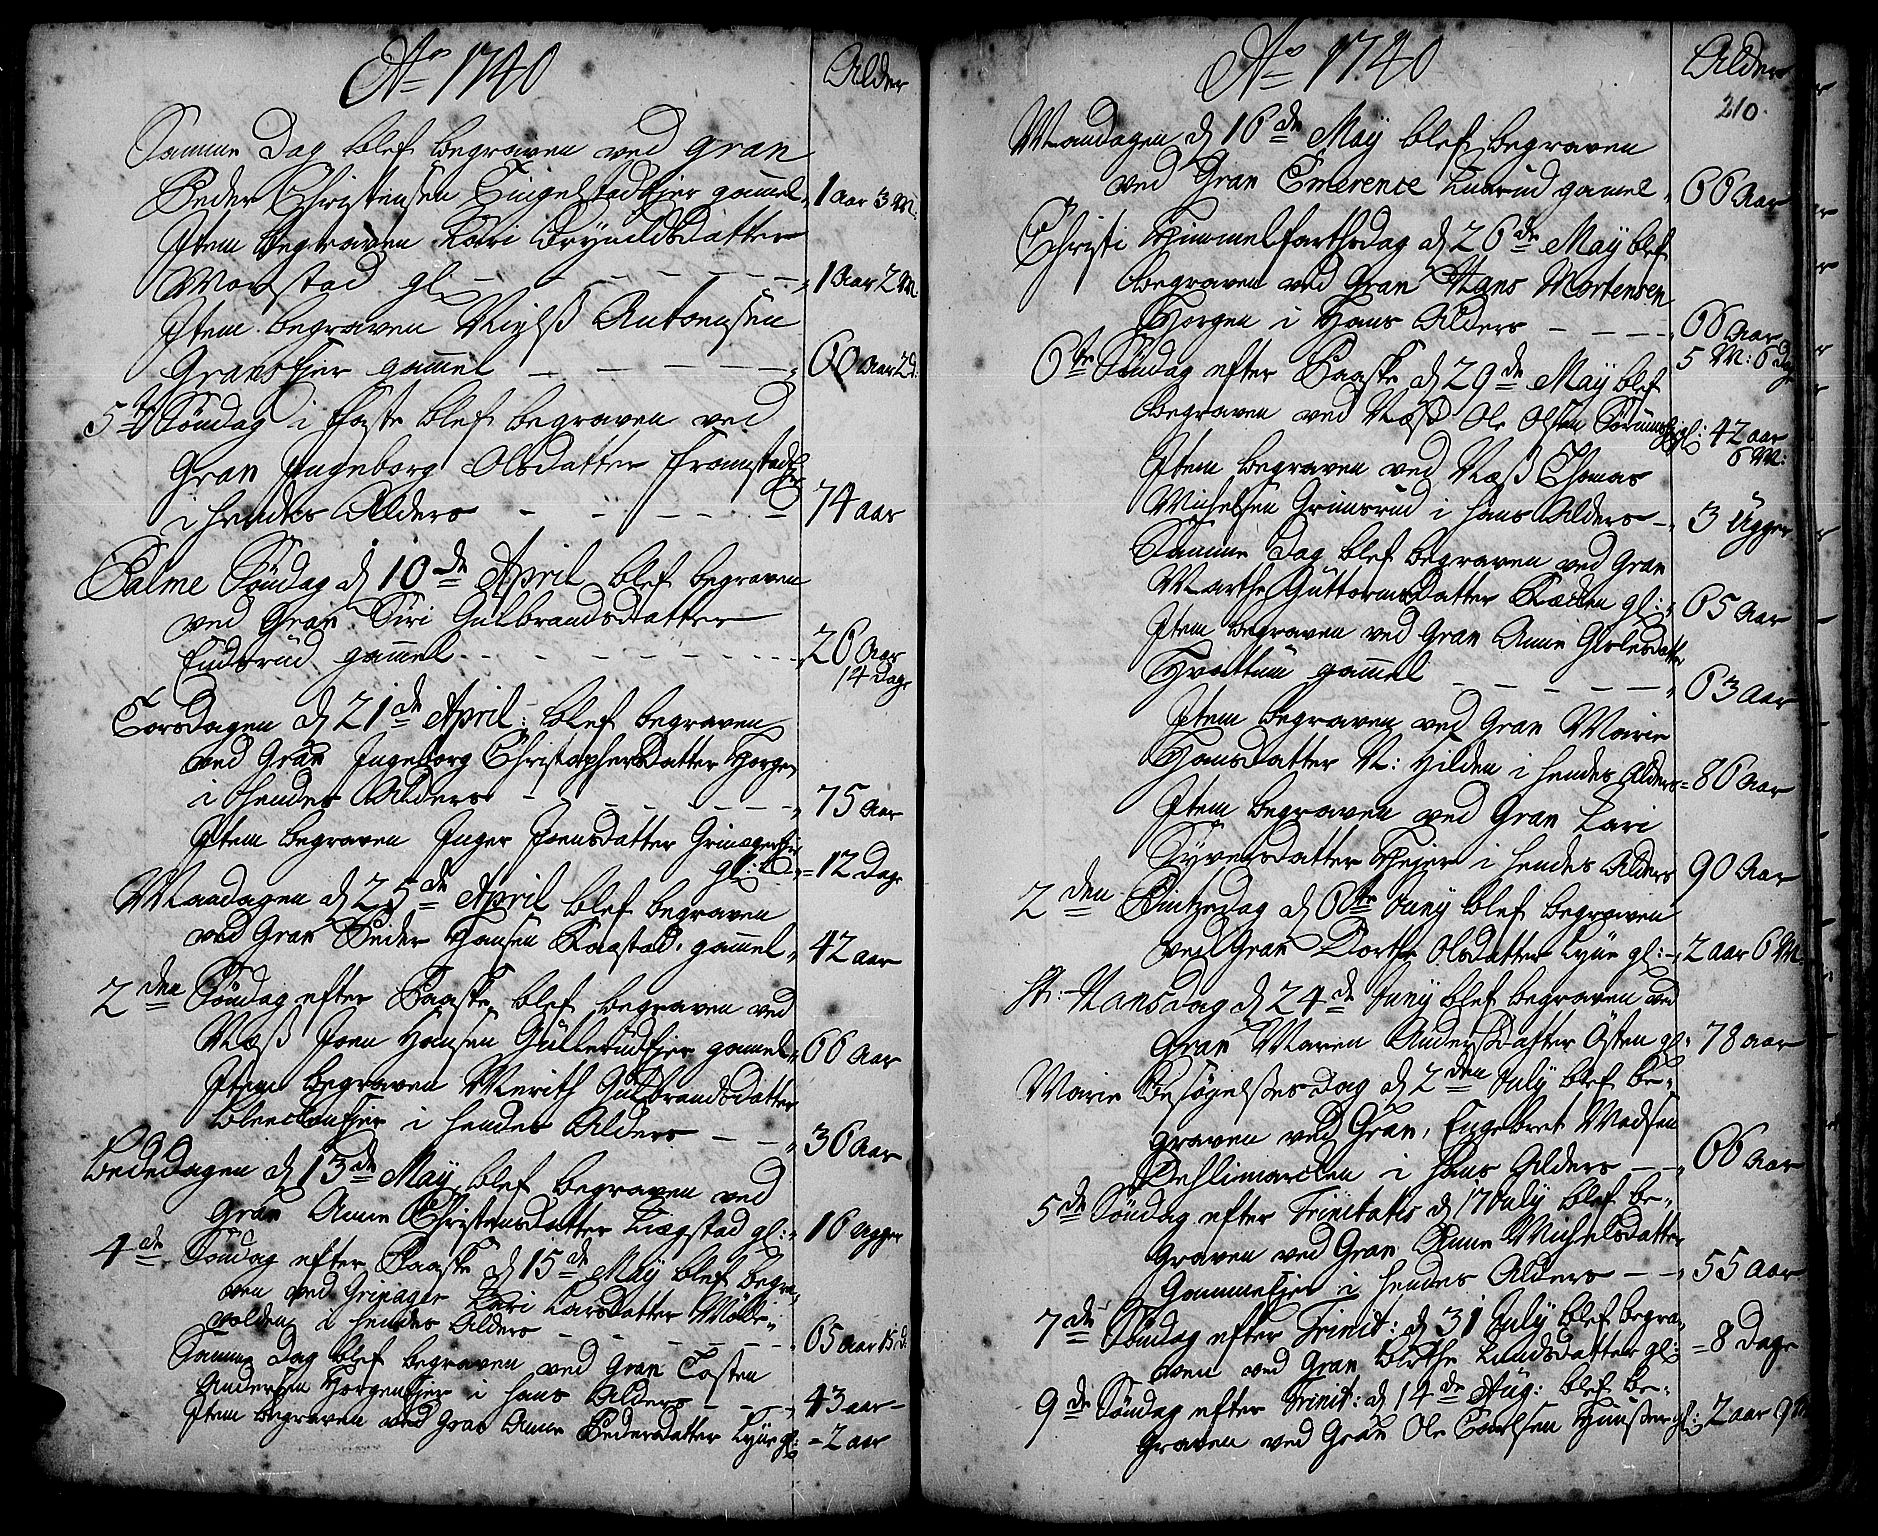 Ao 1740
Alder
Samme Dag blef begraven ved Gran
Peder Christensen Tingelstadejer gammel 1 aar 3 M:
Item begraven Kari Brynildsdatter
Morstad gl: 1 aar 2 M
Item begraven Niels Antonisen
Gransejer gammel 60 aar 2 d:
5te Søndag i Faste blef begraven ved
Gran Ingeborg Olsdatter Framstadejer
i hendes Alders 74 aar
Palme Søndag d 10de April blef begraven
ved Gran Siri Gulbrandsdatter
Endsrud gammel 26 aar
14 Dage
Torsdagen d 21de April: blef begraven
ved Gran Ingeborg Christophersdatter Horgen
i hendes Alders 75 aar
Item begraven Inger Joensdatter
gl: 12 Dage
Mandagen d 25de April blef begraven
ved Gran Peder Hansen Kaastad gammel 42 aar
2den Søndag efter Paaske blef begraven ved
Næss Joen Hansen Gullerudejer gammel 66 aar
Item begraven Merith Gulbrandsdatter
i hendes Alders 36 aar
Bededagen d 13de May blef begraven ved
Gran Anne Christensdatter Liegstad gl: 16 Uger
4de Søndag efter Paaske d 15de May blef begra-
ven ved Grinager Kari Larsdatter Mølle-
volden i hendes Alders 65 aar 15 d:
Samme Dag blef begraven ved Gran Tosten
Andersen Horgenejer i hans Alders 43 aar
Item begraven ved Gran Anne Pedersdatter Lyne gl: 2 aar
Ao 1740
Alder
210.
Mandagen d 16de May blef begraven
ved Gran Emerence Lunrud gamel 66 aar
Christi Himmelfarthsdag d 26de May blef
begraven ved Gran Hans Mortensen
Horgen i Hans Alders 66 aar
5 M: 6 Dage
6te Søndag efter Paaske d 29de May blef
begraven ved Næss Ole Olsen gl: 42 aar
6 M:
Item begraven ved Næss Thomas
Michelsen Grimsrud i hans Alders 3 Uger
Samme Dag blef begraven ved Gran
Marthe Guttormsdatter gl: 65 aar
Item begraven ved Gran Anne Gislesdatter
Hvattum gammel 63 aar
Item begraven ved Gran Marie
Hansdatter N: Hilden i hendes Alders 86 aar
Item begraven ved Gran Kari
Syversdatter i hendes Alders 90 aar
2den Pintzedag d 6te Juny blef begraven
ved Gran Dorthe Olsdatter Lyne gl: 2 aar 6 M
St: Hansdag d 24de Juny blef begraven ved
Gran Maren Andersdatter Østen gl: 78 aar
Marie Besøgelsses Dag d 2den July blef be-
graven ved Gran, Engebret Madsen
Dehlimarcken i hans Alders 66 aar
5de Søndag efter Trinitatis d 17 July blef be-
graven ved Gran Anne Michelsdatter
i hendes Alders 55 aar
7de Søndag efter Trinit: d 31 July blef begra-
ven ved Gran Birthe Lundsdatter gl: 8 Dage
9de Søndag efter Trinit: d 14de Aug: blef be-
graven ved Gran Ole gl: 2 aar 9 M